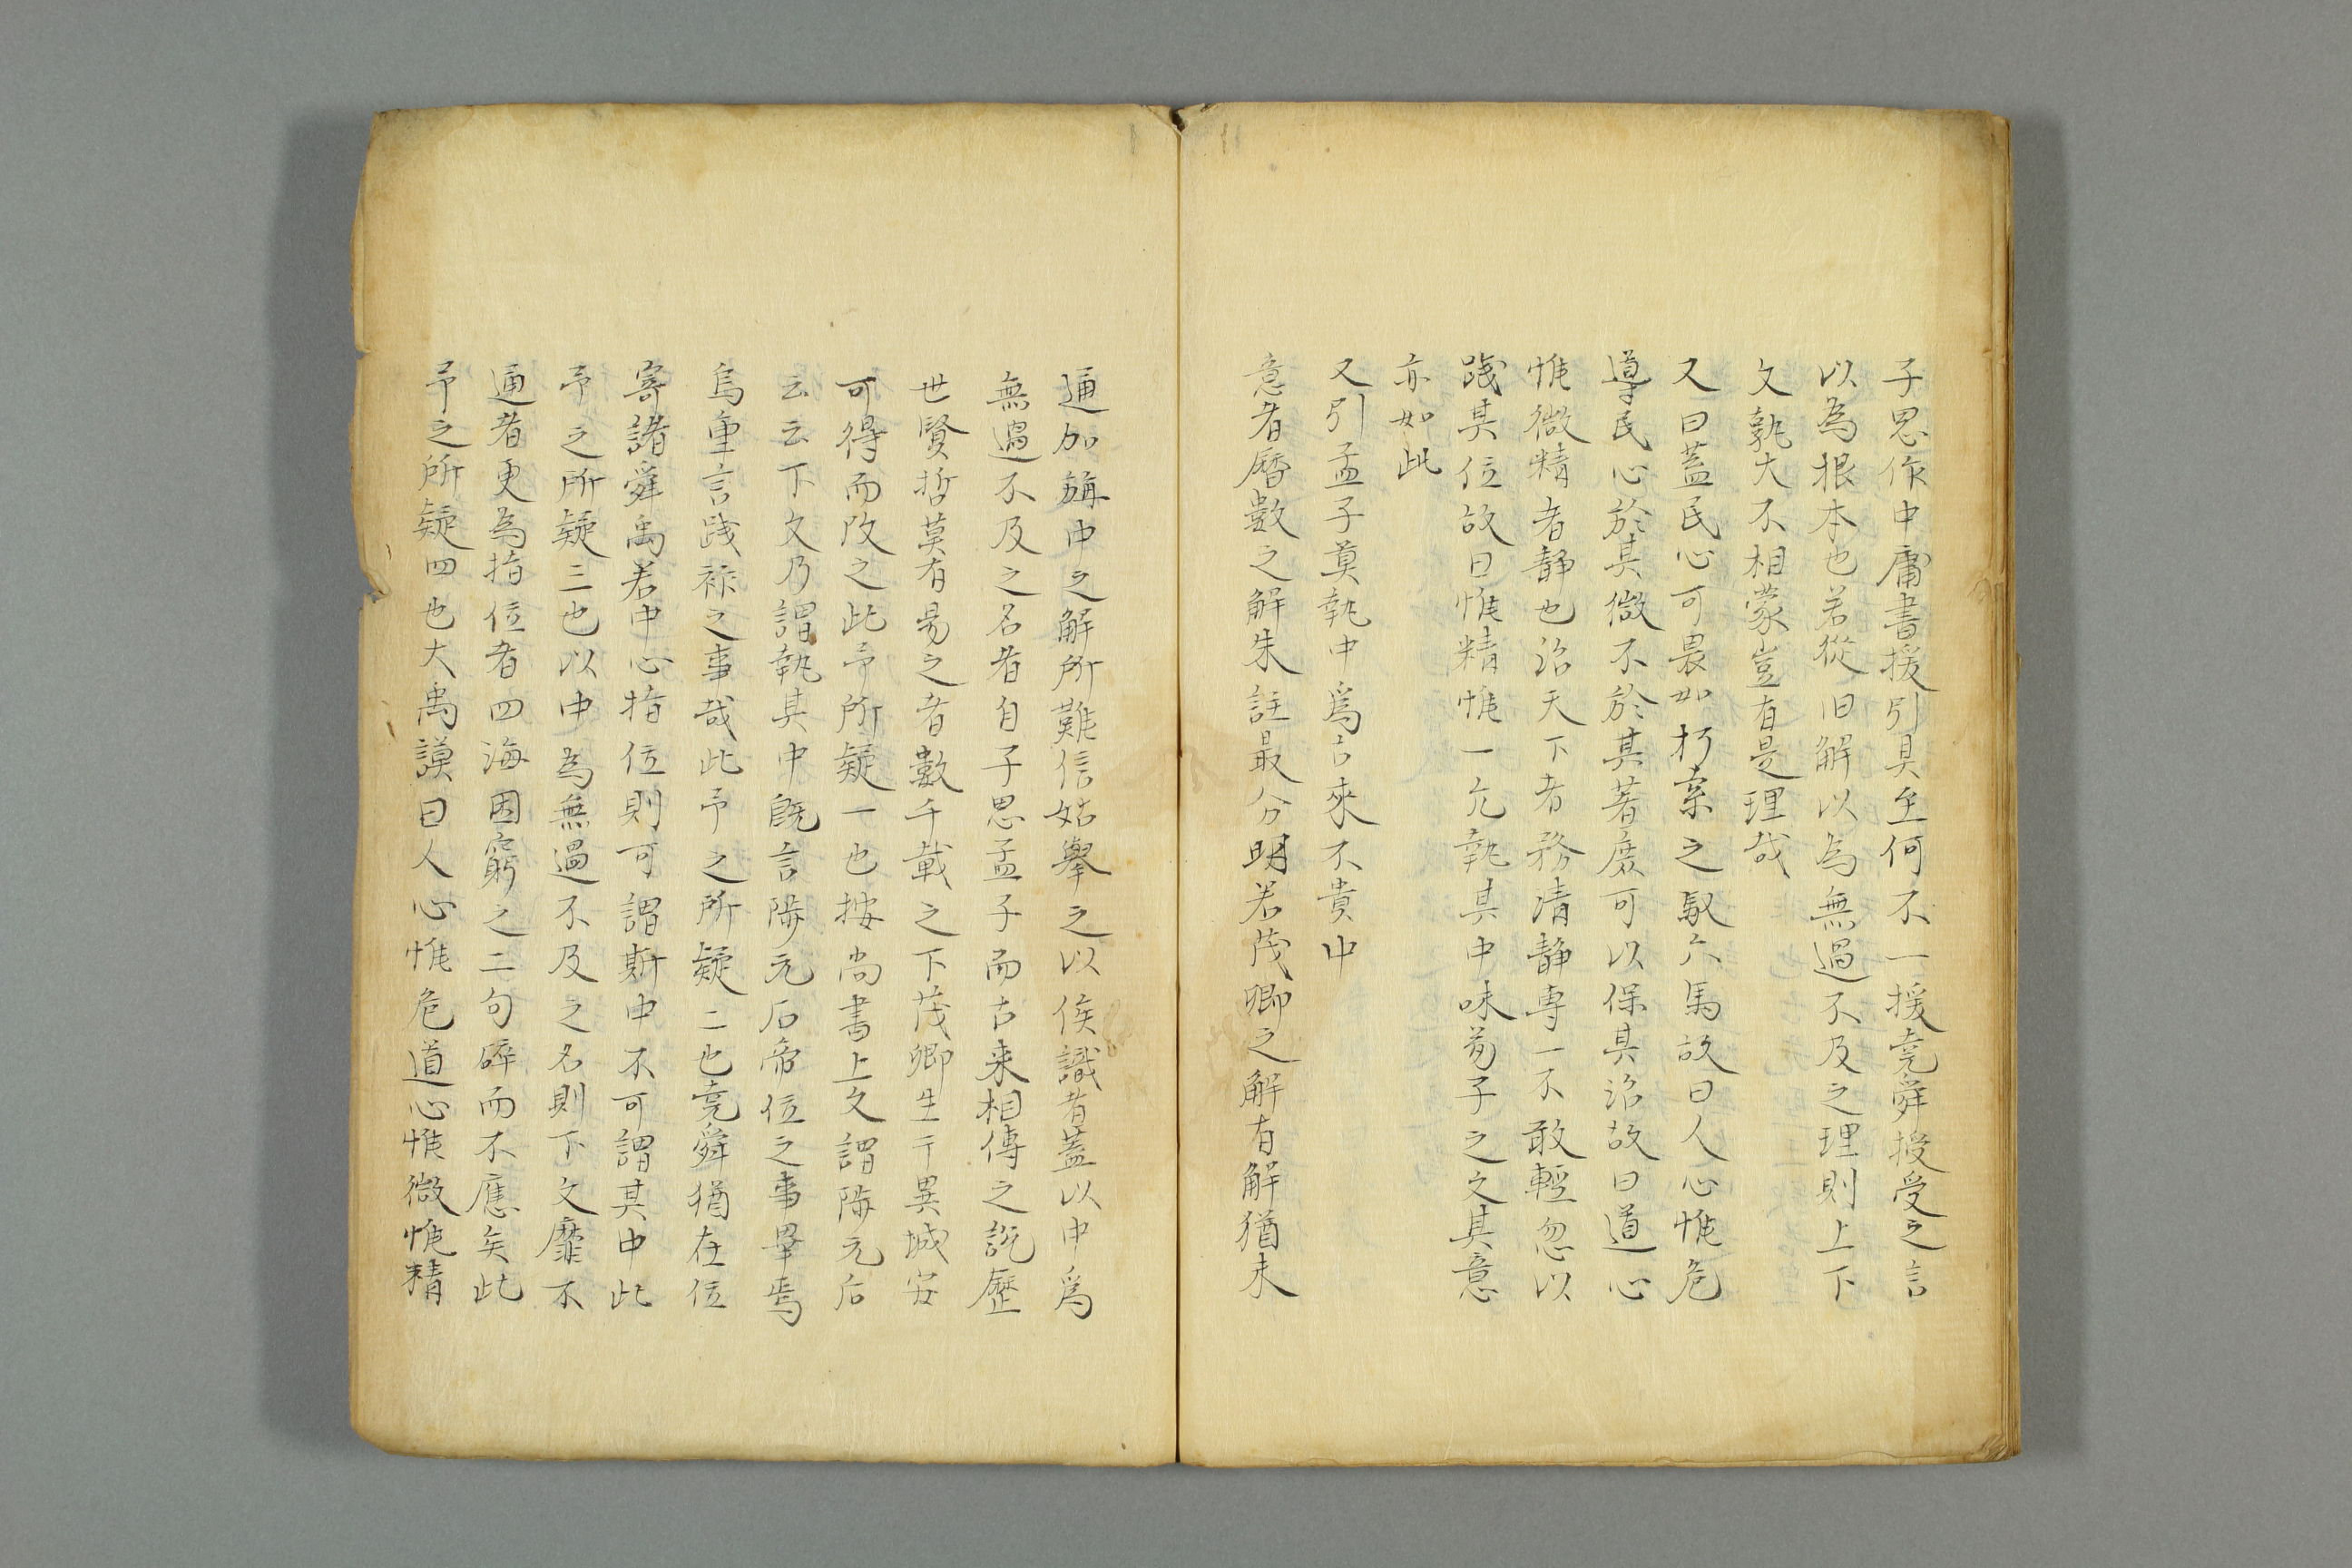 子思作中庸書援引具至何不一援堯舜授受之言
以為根本也若從旧解以為無過不及之理則上下
文孰大不相蒙豈有是理哉
又曰蓋民心可畏如朽索之馭六馬故曰人心惟危
導民心於其微不於其著庶可以保其治故曰道心
惟微精者靜也治天下者務清靜専一不敢輕忽以
踐其位故曰惟精惟一允執其中味荀子之文其意
亦如此
又引孟子莫執中為古來不貴中
意者暦數之解朱註最分明若茂卿之解有解猶未
通加旃中之解所難信姑舉之以俟識者蓋以中為
無過不及之名者自子思孟子而古来相傳之説歷
世賢哲莫有易之者數千載之下茂卿生于異域安
可得而改之此予所疑一也按尚書上文謂陟元后
云云下文乃謂執其中既言陟元后帝位之事畢焉
烏重言踐祚之事哉此予之所疑二也堯舜猶在位
寄諸舜禹若中心指位則可謂斯中不可謂其中此
予之所疑三也以中為無過不及之名則下文靡不
通者更為指位者四海困窮之二句碎而不應矣此
予之所疑四也大禹謨曰人心惟危道心惟微惟精